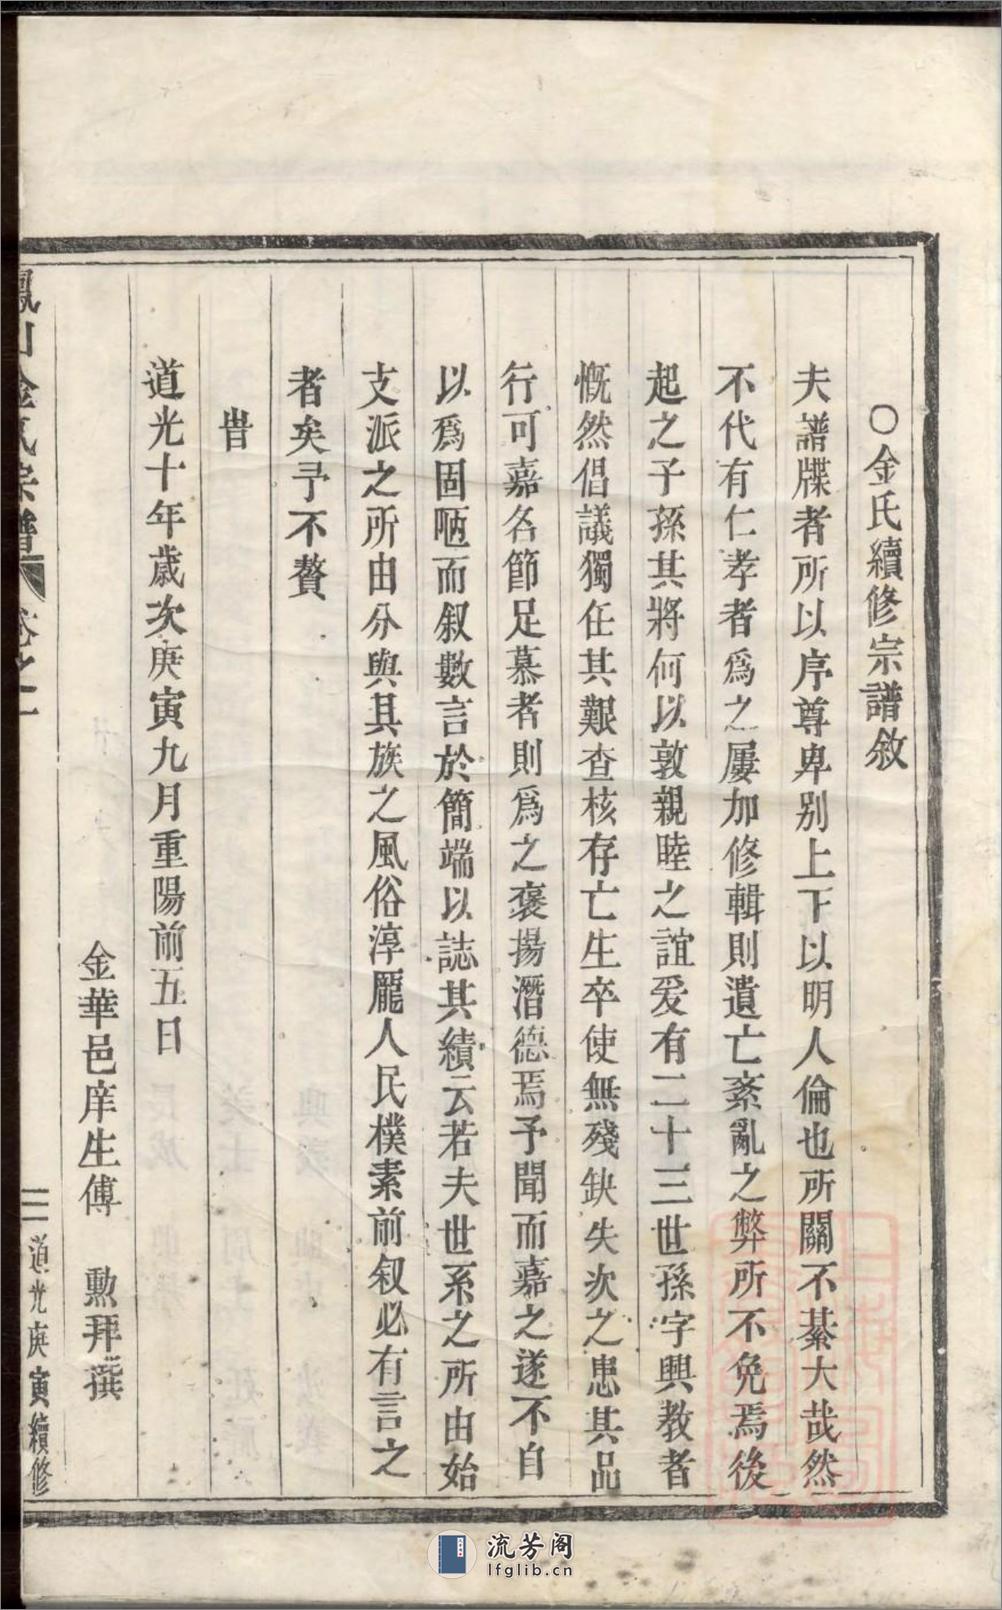 ○金氏續修宗譜敘
夫譜牒者所以序尊卑別上下以明人倫也所關不綦大哉然
不代有仁孝者爲之屢加修輯則遺亡紊亂之弊所不免焉後
起之子孫其將何以敦親睦之誼爰有二十三世孫字興教者
慨然倡議獨任其艱查核存亡生卒使無殘缺失次之患其品
行可嘉名節足慕者則爲之褒揚潛德焉予聞而嘉之遂不自
以爲固陋而叙數言於簡端以誌其績云若夫世系之所由始
支派之所由分與其族之風俗淳龎人民樸素前叙必有言之
者矣予不贅
旹
道光十年歲次庚寅九月重陽前五日
金華邑庠生傅 勲拜撰
鳳山金氏宗譜 卷之一
二 道光庚寅續修
流芳阁
lfglib.cn